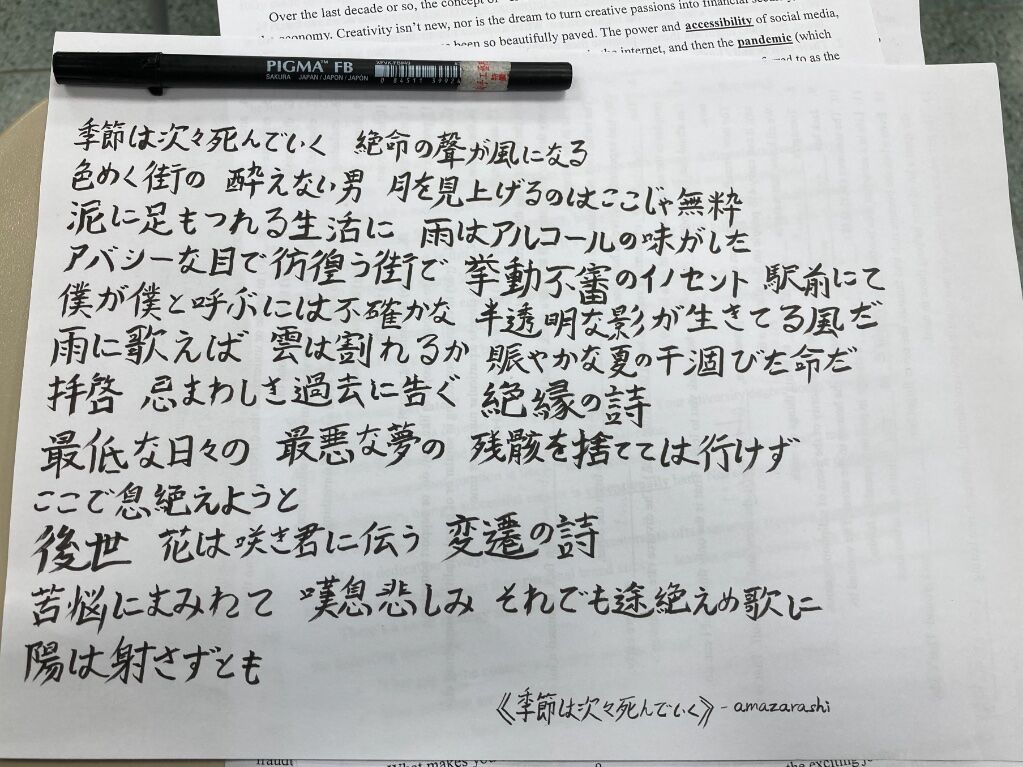 Over the last decade or so, the concept of
economy. Creativity isn't new, nor is the dream to turn creative passions into financial
been so beautifully paved. The power and accessibility of social media,
the internet, and then the pandemic (which
to as the
PIGMA™ FB
SAKURA JAPAN / JAPON / JAPÓN
0 84511 39924
季節は次々死んでいく 絶命の聲が風になる
色めく街の 酔えない男 月を見上げるのはここじゃ無粋
泥に足もつれる生活に 雨はアルコールの味がした
アバシーな目で彷徨う街で 挙動不審のイノセント 駅前にて
僕が僕と呼ぶには不確かな 半透明な影が生きてる風だ
雨に歌えば 雲は割れるか 賑やかな夏の干涸びた命だ
拝啓 忌まわしき過去に告ぐ 絶縁の詩
最低な日々の 最悪な夢の 残骸を捨てては行けず
ここで息絶えようと
後世 花は咲き君に伝う 変遷の詩
苦悩にまみれて 嘆息悲しみ それでも途絶えぬ歌に
陽は射さずとも
《季節は次々死んでいく》- amazarashi
What makes you
the exciting